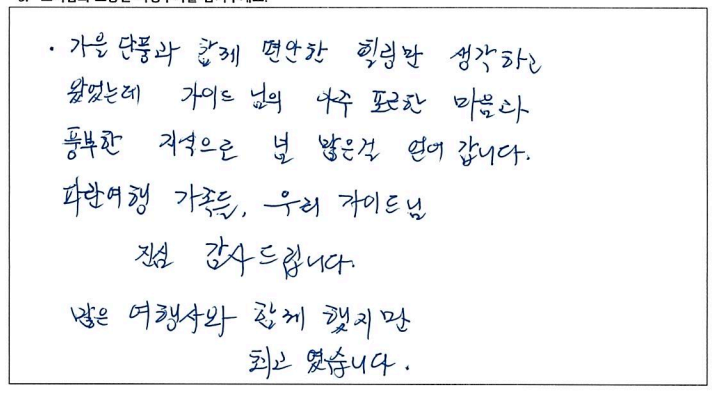 · 가을 단풍과 함께 편안한 힐링만 생각하고
왔었는데 가이드 님의 아주 포근한 마음과
풍부한 지식으로 넘 많은걸 얻어 갑니다.
파란여행 가족들, 우리 가이드님
진심 감사드립니다.
많은 여행사와 함께 했지만
최고 였습니다.